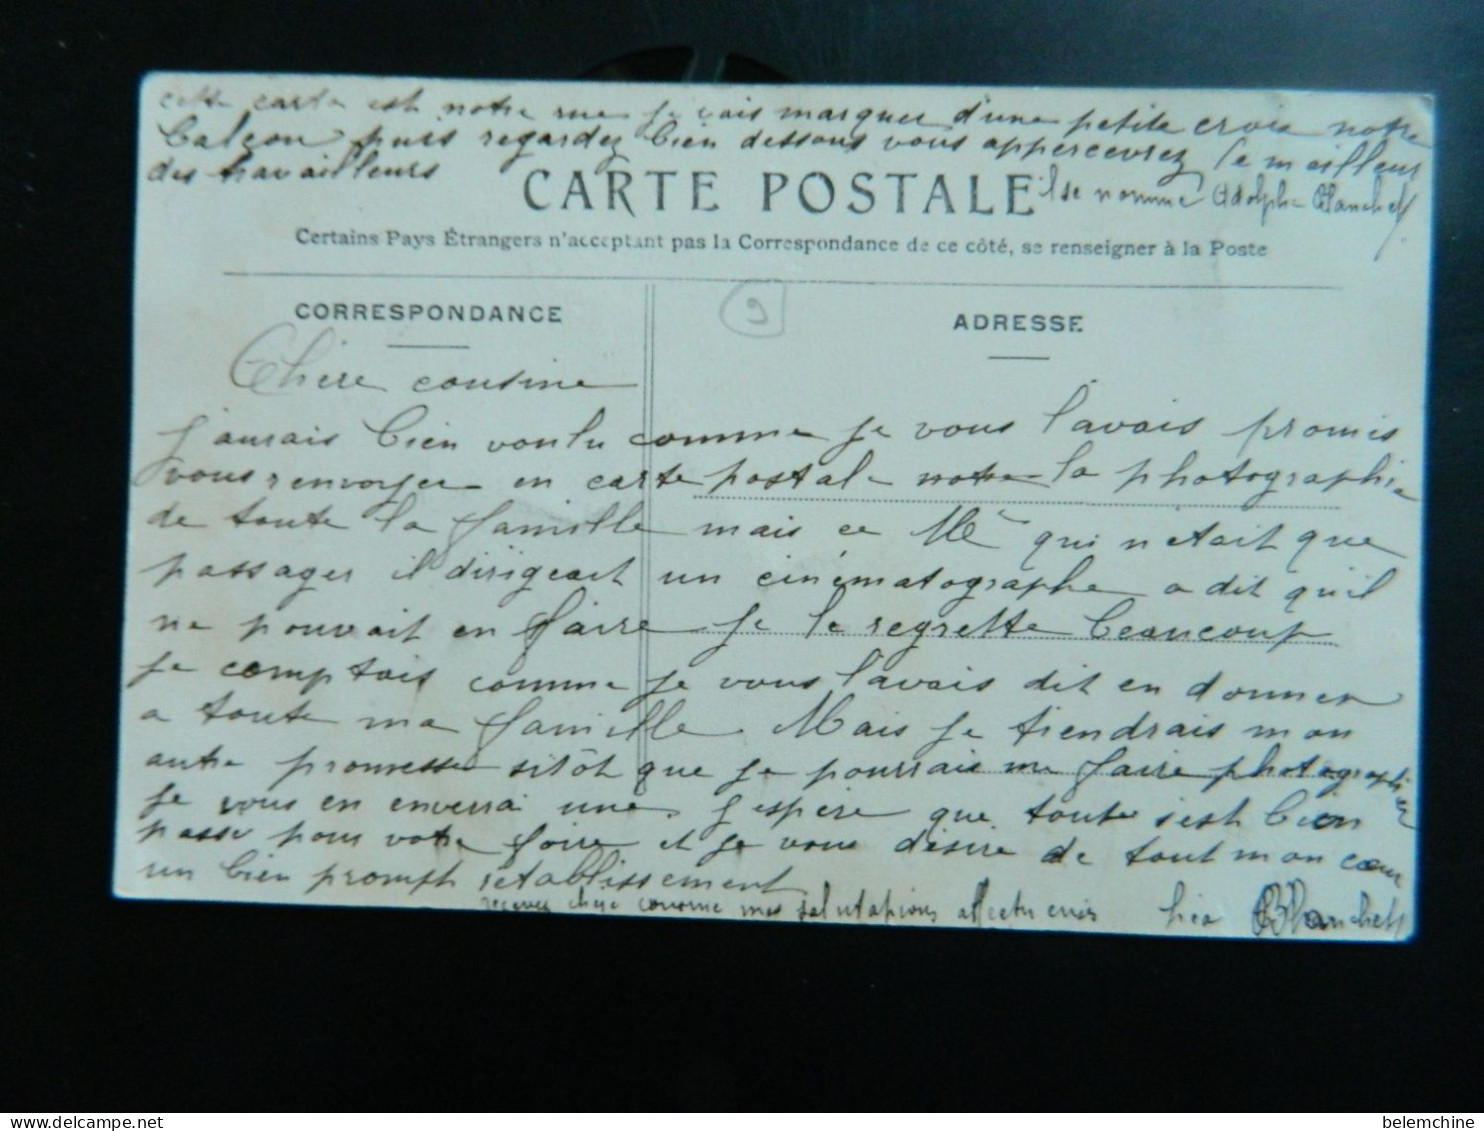 cette carte est notre rue je vais marquer d'une petite croix notre
balcon puis regardez bien dessous vous appercevrez le meilleur
des travailleurs
il se nomme Adolphe Blanchet
CARTE POSTALE
Certains Pays Étrangers n'acceptant pas la Correspondance de ce côté, se renseigner à la Poste
9
CORRESPONDANCE
ADRESSE
Chère cousine
J'aurais bien voulu comme je vous l'avais promis
vous renvoyer en carte postale notre la photographie
de toute la famille mais ce Mr qui n'etait que
passager il dirigeait un cinématographe a dit qu'il
ne pouvait en faire je le regrette beaucoup
je comptais comme je vous l'avais dit en donner
a toute ma famille. Mais je tiendrais mon
autre promesse sitôt que je pourrais me faire photographier
je vous en enverrai une. J'espère que toute s'est bien
passé pour votre foire et je vous désire de tout mon cœur
un bien prompt retablissement
recevez chère cousine mes salutations affectueuses Léa Blanchet
belemchine